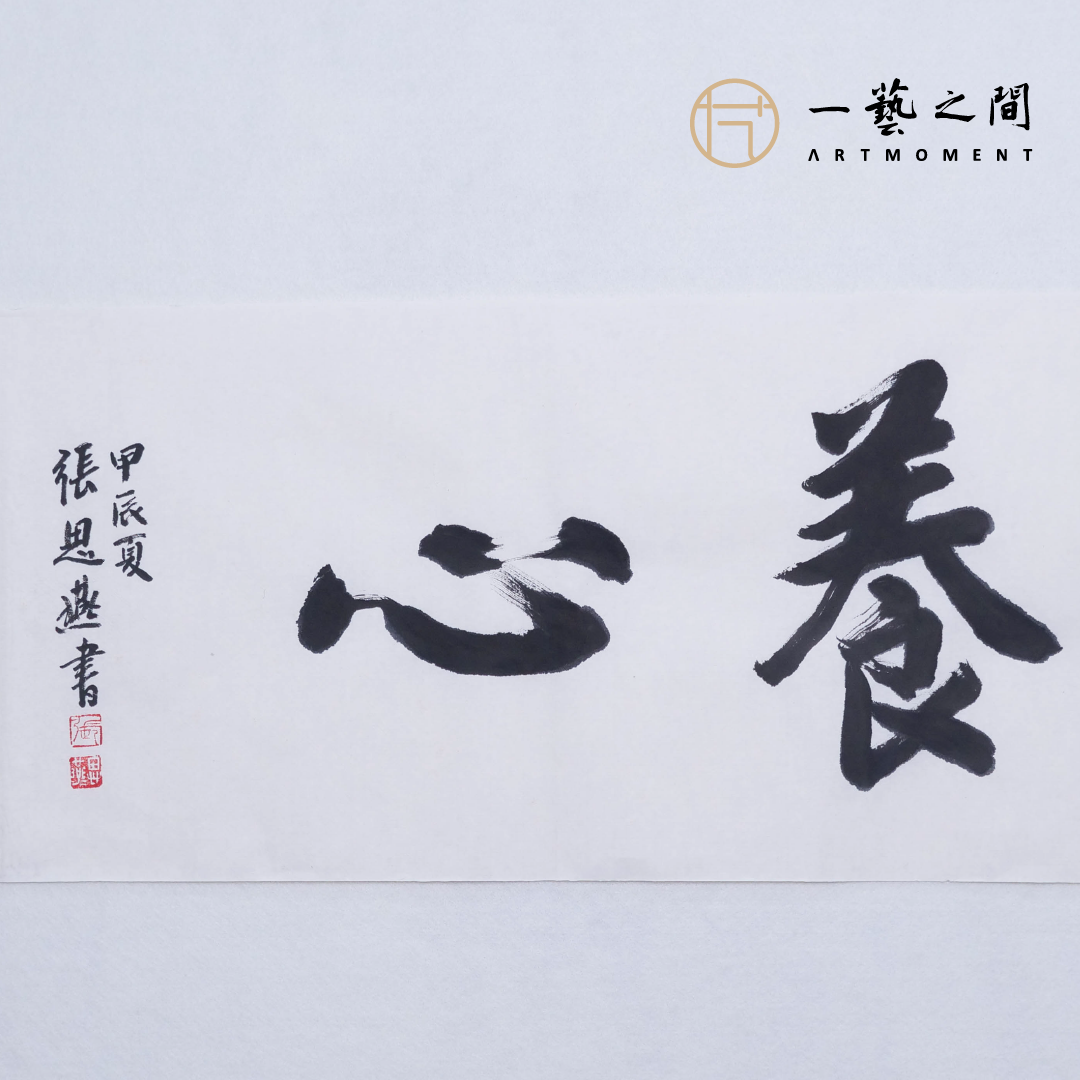 一藝之間
ARTMOMENT
養心
甲辰夏
張思燕書
張
思燕